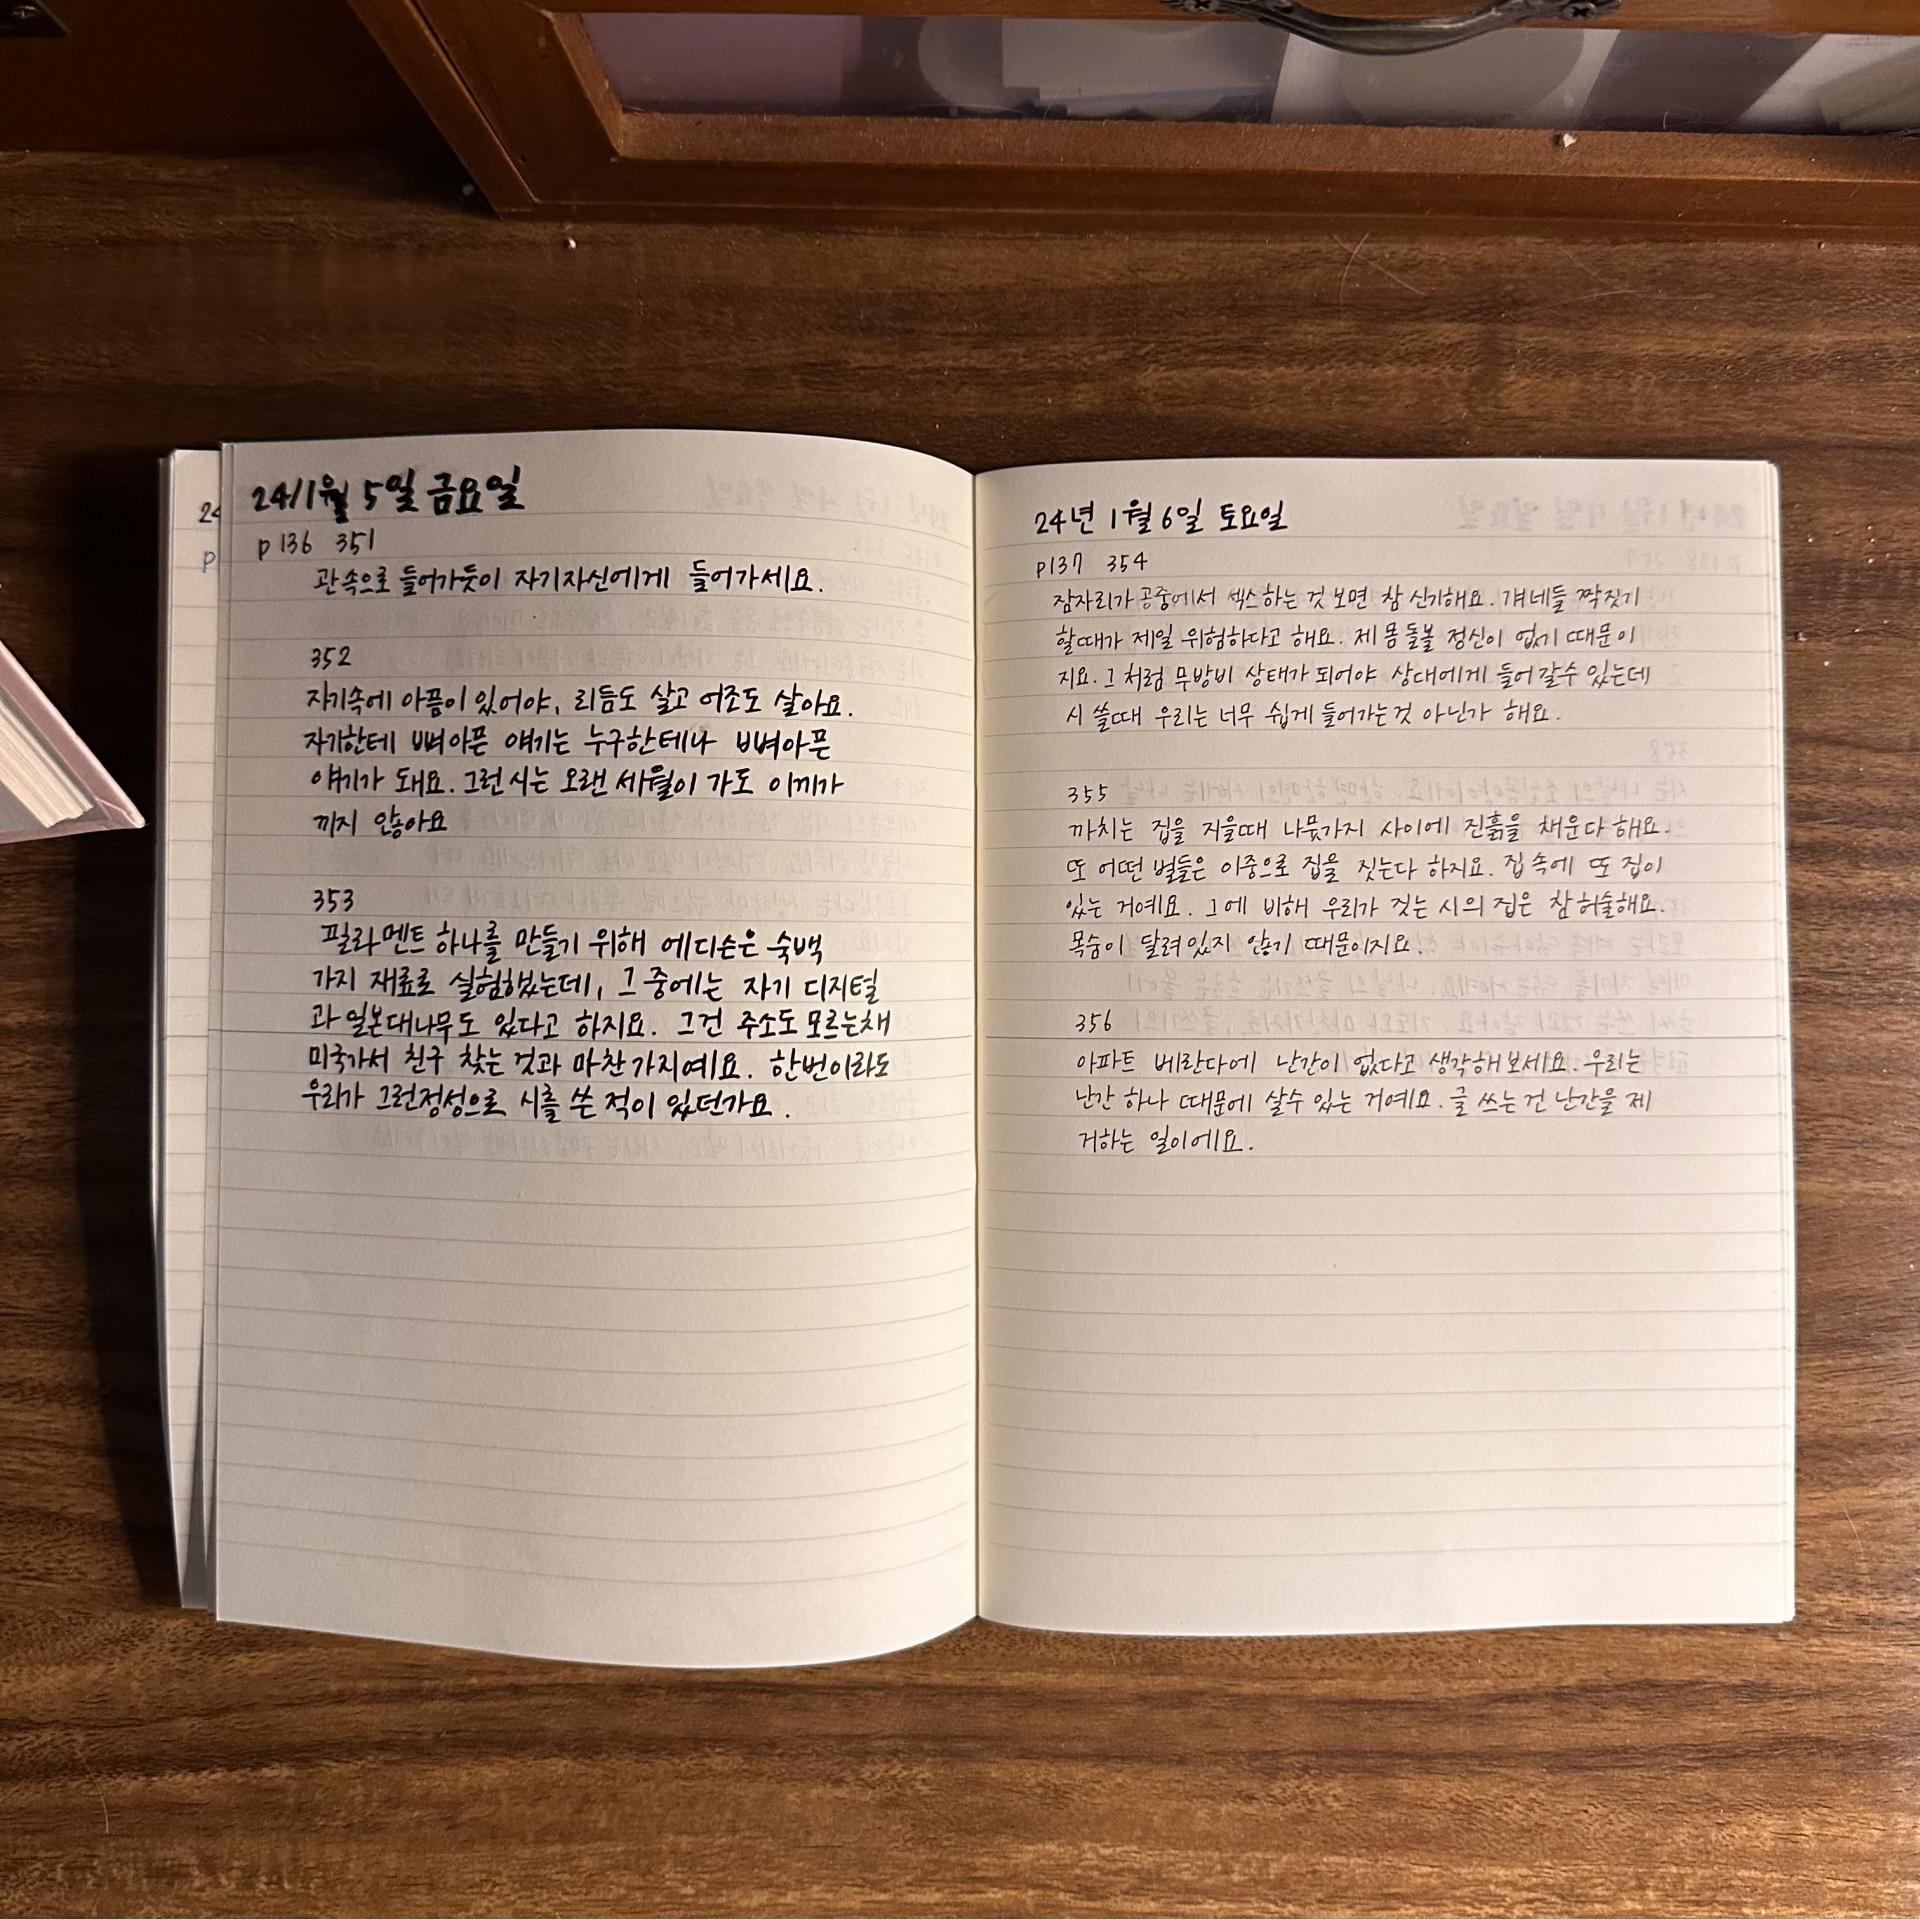 24/1월 5일 금요일
p136 351
관속으로 들어가듯이 자기자신에게 들어가세요.
352
자기속에 아픔이 있어야, 리듬도 살고 어조도 살아요.
자기한테 뼈아픈 얘기는 누구한테나 뼈아픈
얘기가 돼요. 그런 시는 오랜 세월이 가도 이끼가
끼지 않아요
353
필라멘트 하나를 만들기 위해 에디슨은 숙백
가지 재료로 실험했는데, 그 중에는 자기 디지털
과 일본대나무도 있다고 하지요. 그건 주소도 모르는채
미국가서 친구 찾는 것과 마찬가지예요. 한번이라도
우리가 그런정성으로 시를 쓴 적이 있던가요.
24
p
24년 1월 6일 토요일
p137 354
잠자리가 공중에서 섹스하는 것 보면 참 신기해요. 걔네들 짝짓기
할때가 제일 위험하다고 해요. 제 몸 돌볼 정신이 없기 때문이
지요. 그처럼 무방비 상태가 되어야 상대에게 들어갈수 있는데
시 쓸때 우리는 너무 쉽게 들어가는것 아닌가 해요.
355
까치는 집을 지을때 나뭇가지 사이에 진흙을 채운다 해요.
또 어떤 벌들은 이중으로 집을 짓는다 하지요. 집 속에 또 집이
있는 거예요. 그에 비해 우리가 짓는 시의 집은 참 허술해요.
목숨이 달려있지 않기 때문이지요.
356
아파트 베란다에 난간이 없다고 생각해보세요. 우리는
난간 하나 때문에 살수 있는 거예요. 글 쓰는 건 난간을 제
거하는 일이에요.